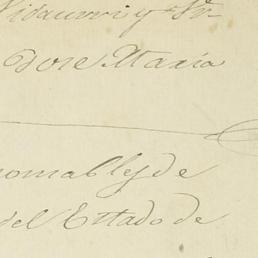 Vidaurri y Sr.
Jose Maria
nomables de
del Estado de